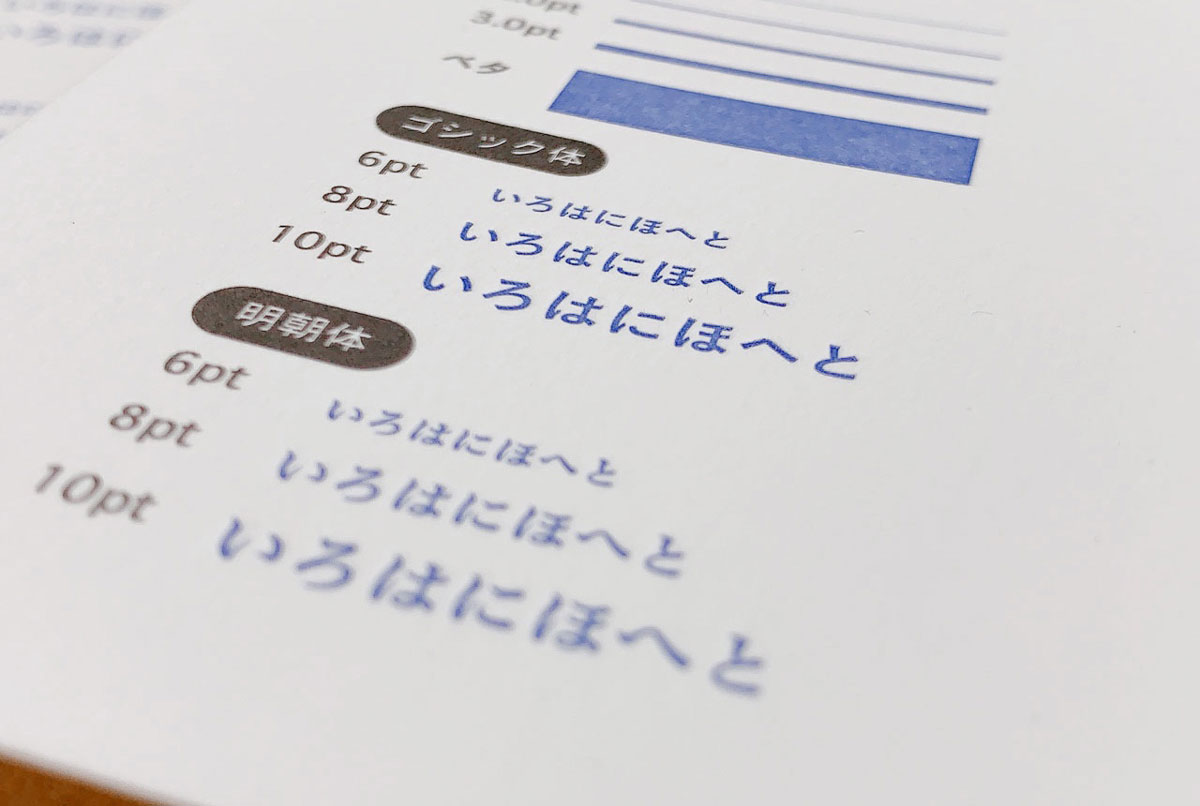 3.0pt
ベタ
ゴシック体
6pt いろはにほへと
8pt いろはにほへと
10pt いろはにほへと
明朝体
6pt いろはにほへと
8pt いろはにほへと
10pt いろはにほへと